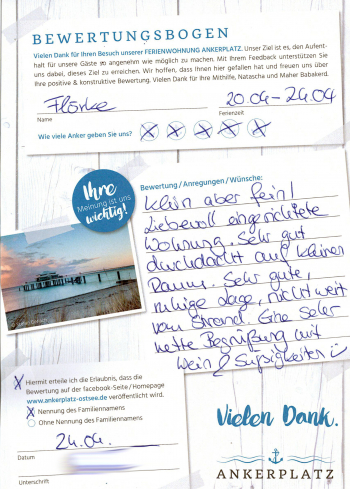 BEWERTUNGSBOGEN
Vielen Dank für Ihren Besuch unserer FERIENWOHNUNG ANKERPLATZ. Unser Ziel ist es, den Aufent-
halt für unsere Gäste so angenehm wie möglich zu machen. Mit Ihrem Feedback unterstützen Sie
uns dabei, dieses Ziel zu erreichen. Wir hoffen, dass Ihnen hier gefallen hat und freuen uns über
Ihre positive & konstruktive Bewertung. Vielen Dank für Ihre Mithilfe, Natascha und Maher Babakerd.
Flörke 20.04-24.04
Name Ferienzeit
Wie viele Anker geben Sie uns?
Ihre
Meinung ist uns
wichtig!
Bewertung / Anregungen / Wünsche:
Klein aber fein!
Liebevoll eingerichtete
Wohnung. Sehr gut
durchdacht auf kleinen
Raum. Sehr gute,
ruhige Lage, nicht weit
vom Strand. Eine sehr
nette Begrüßung mit
Wein & Süßigkeiten
X Hiermit erteile ich die Erlaubnis, dass die
Bewertung auf der facebook-Seite / Homepage
www.ankerplatz-ostsee.de veröffentlicht wird.
X Nennung des Familiennamens
Ohne Nennung des Familiennamens
24.04.
Datum
Unterschrift
Vielen Dank.
ANKERPLATZ